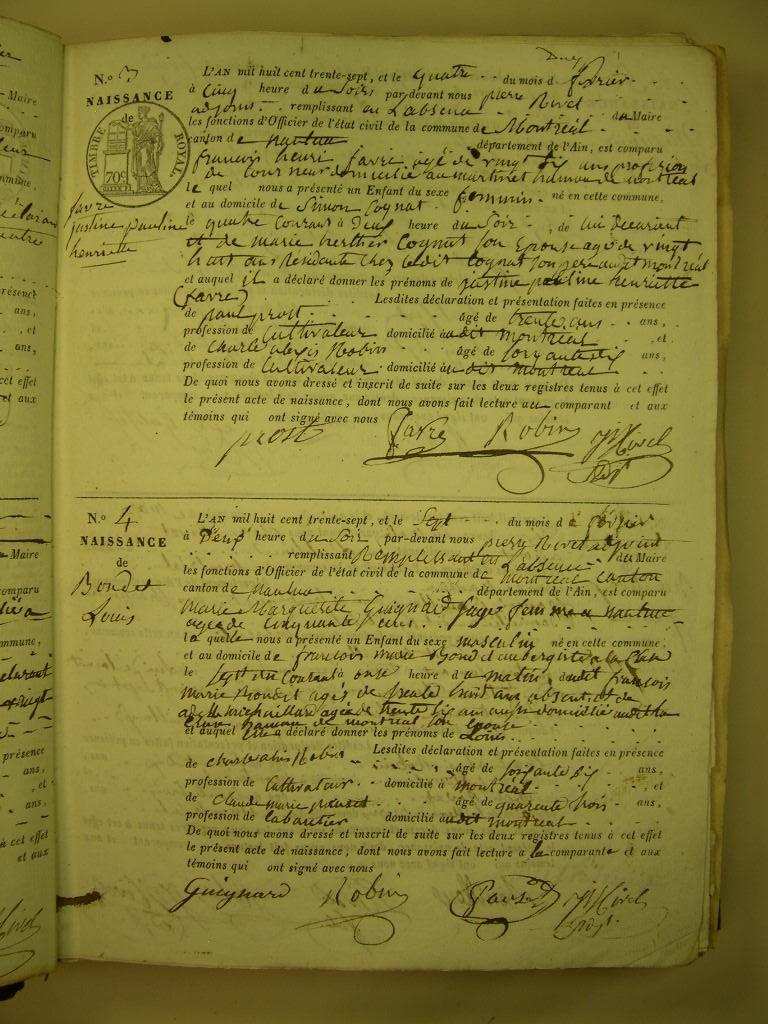 N.o 3
NAISSANCE
de
TIMBRE ROYAL
70c
favre
justine pauline
henriette
L'AN mil huit cent trente-sept, et le quatre du mois de février
à Cinq heure du Soir par-devant nous pierre Rivet
adjoint remplissant en L'absence du Maire
les fonctions d'Officier de l'état civil de la commune de Montréal
canton de nantua département de l'Ain, est comparu
francois henri favre agé de vingt six ans profession
de tourneur domicilié au martinet hameau de montreal
le quel nous a présenté un Enfant du sexe feminin né en cette commune,
et au domicile de Simon Cognat
le quatre Courant à Deux heure du Soir, de lui Déclarant
et de marie Cognat son Epouse agé de vingt
huit ans Résidante chez ledit Cognat son pere audit montreal
et auquel il a déclaré donner les prénoms de justine pauline henriette
(favre) Lesdites déclaration et présentation faites en présence
de paul prost âgé de trente ans,
profession de Cultivateur domicilié audit montreal, et
de Charle alexis Robin âgé de soixante six ans,
profession de Cultivateur domicilié audit montreal
De quoi nous avons dressé et inscrit de suite sur les deux registres tenus à cet effet
le présent acte de naissance, dont nous avons fait lecture au comparant et aux
témoins qui ont signé avec nous
prost favre Robin
N.o 4
NAISSANCE
de
Bondet
Louis
L'AN mil huit cent trente-sept, et le Sept du mois de février
à Deux heure du Soir par-devant nous pierre Rivet adjoint
remplissant Remplissant en L'absence du Maire
les fonctions d'Officier de l'état civil de la commune de montreal canton
canton de Nantua département de l'Ain, est comparu
Marie Marguerite Guignard sage femme a nantua
agée de cinquante ans
la quelle nous a présenté un Enfant du sexe masculin né en cette commune,
et au domicile de francois marie Bondet aubergiste a la
le Sept du Courant à onze heure du matin, dudit francois
marie Bondet agés de trente huit ans absent, et de
agée de trente six ans aussi domicilié audit
hameau de montreal son epouse
et auquel elle a déclaré donner les prénoms de Louis
Lesdites déclaration et présentation faites en présence
de charle alexis Robin âgé de soixante six ans,
profession de Cultivateur domicilié à montréal, et
de claude marie âgé de quarente trois ans,
profession de domicilié audit montreal
De quoi nous avons dressé et inscrit de suite sur les deux registres tenus à cet effet
le présent acte de naissance, dont nous avons fait lecture a la comparante et aux
témoins qui ont signé avec nous
Guignard Robin